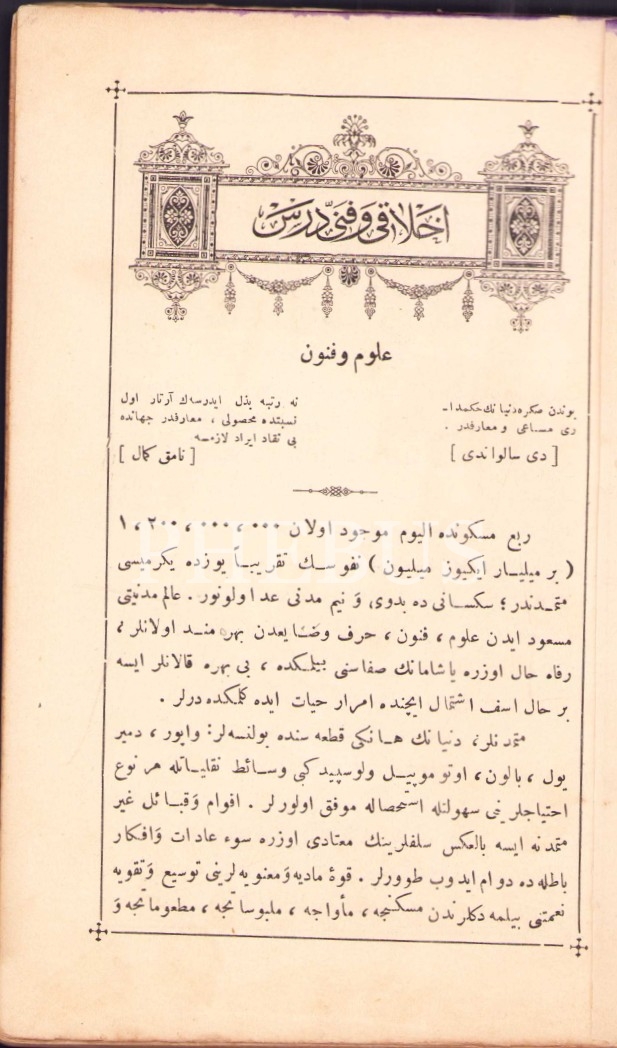 اخلاقی و فنی درس
علوم و فنون
بوندن صكره دنيانك حكمدا-
ری مساعی و معارفدر .
[ دی سالواندی ]
نه رتبه بذل ايدرسه‌ك آرتار اول
نسبتده محصولی ، معارفدر جهانده
بی نفاد ايراد لازمسه
[ نامق كمال ]
ربع مسكونده اليوم موجود اولان ۱،۲۰۰،۰۰۰،۰۰۰
( بر ميليار ايكيوز ميليون ) نفوسك تقريباً يوزده يكرميسی
متمدندر ؛ سكسانی ده بدوی، وَ نيم مدنی عد اولونور . عالم مدنيتی
مسعود ايدن علوم ، فنون ، حرف وصنايعدن بهره‌مند اولانلر ،
رفاه حال اوزره ياشامانك صفاسنی بيلمكده ، بی بهره قالانلر ايسه
بر حال اسف اشتمال ايچنده امرار حيات ايده كلمكده درلر .
متمدنلر، دنيانك هانكی قطعه سنده بولنسه‌لر: واپور ، دمير
يول ، بالون ، اوتوموبيل ولوسپيد كبی وسائط نقلياتله هر نوع
احتياجلرينی سهولتله استحصاله موفق اولورلر . اقوام وَقبائل غير
متمدنه ايسه بالعكس سلفلرينك معتادی اوزره سوء عادات وَافكار
باطله ده دوام ايدوب طوورلر . قوهٔ ماديه وَمعنويه لرينی توسيع وَتقويه
نعمتنی بيلمه دكلرندن مسكنجه ، مأواجه ، ملبوساتجه ، مطعوماتجه وَ
PHEBUS